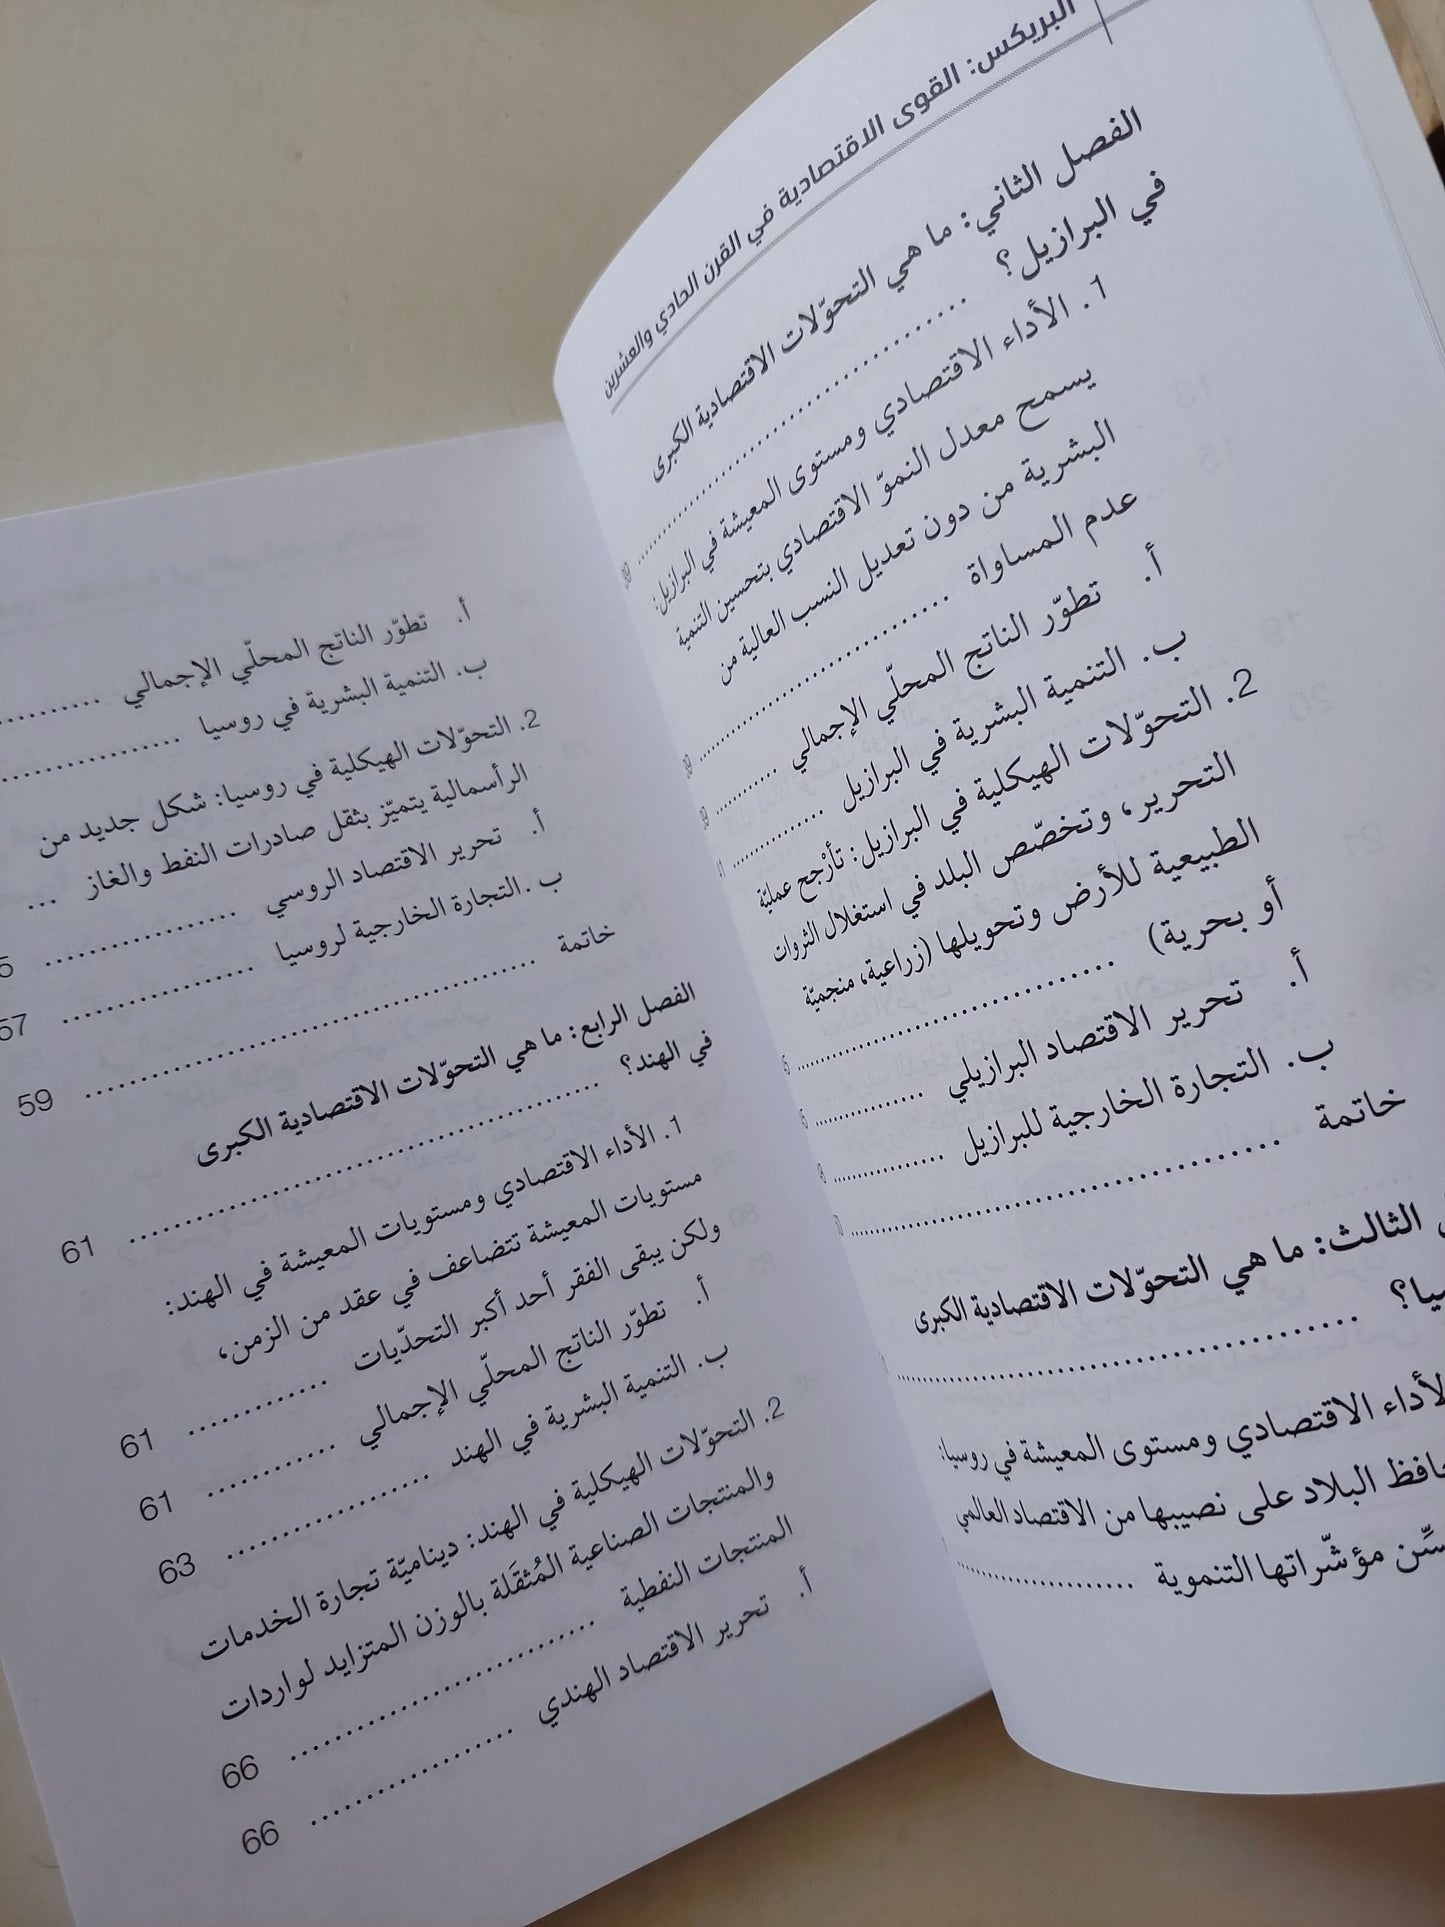 البريكس: القوى الاقتصادية في القرن الحادي والعشرين
الفصل الثاني: ما هي التحوّلات الاقتصادية الكبرى
في البرازيل؟ ..............................
1. الأداء الاقتصادي ومستوى المعيشة في البرازيل:
يسمح معدل النموّ الاقتصادي بتحسين التنمية
البشرية من دون تعديل النسب العالية من
عدم المساواة ..............................
أ. تطوّر الناتج المحلّي الإجمالي ..........
ب. التنمية البشرية في البرازيل ............
2. التحوّلات الهيكلية في البرازيل: تأرْجح عمليّة
التحرير، وتخصّص البلد في استغلال الثروات
الطبيعية للأرض وتحويلها (زراعية، منجميّة
أو بحرية) ..............................
أ. تحرير الاقتصاد البرازيلي ..................
ب. التجارة الخارجية للبرازيل ..................
خاتمة ........................................
الثالث: ما هي التحوّلات الاقتصادية الكبرى
..............................
الأداء الاقتصادي ومستوى المعيشة في روسيا:
البلاد على نصيبها من الاقتصاد العالمي
مؤشّراتها التنموية ....................
أ. تطوّر الناتج المحلّي الإجمالي ..........
ب. التنمية البشرية في روسيا ..................
2. التحوّلات الهيكلية في روسيا: شكل جديد من
الرأسمالية يتميّز بثقل صادرات النفط والغاز ...
أ. تحرير الاقتصاد الروسي ....................
ب. التجارة الخارجية لروسيا .................... 57
خاتمة ........................................ 59
الفصل الرابع: ما هي التحوّلات الاقتصادية الكبرى
في الهند؟ ........................................ 61
1. الأداء الاقتصادي ومستويات المعيشة في الهند:
مستويات المعيشة تتضاعف في عقد من الزمن،
ولكن يبقى الفقر أحد أكبر التحدّيات ............ 61
أ. تطوّر الناتج المحلّي الإجمالي ............ 61
ب. التنمية البشرية في الهند .................. 63
2. التحوّلات الهيكلية في الهند: ديناميّة تجارة الخدمات
والمنتجات الصناعية المُثقَلة بالوزن المتزايد لواردات
المنتجات النفطية .............................. 66
أ. تحرير الاقتصاد الهندي .................... 66